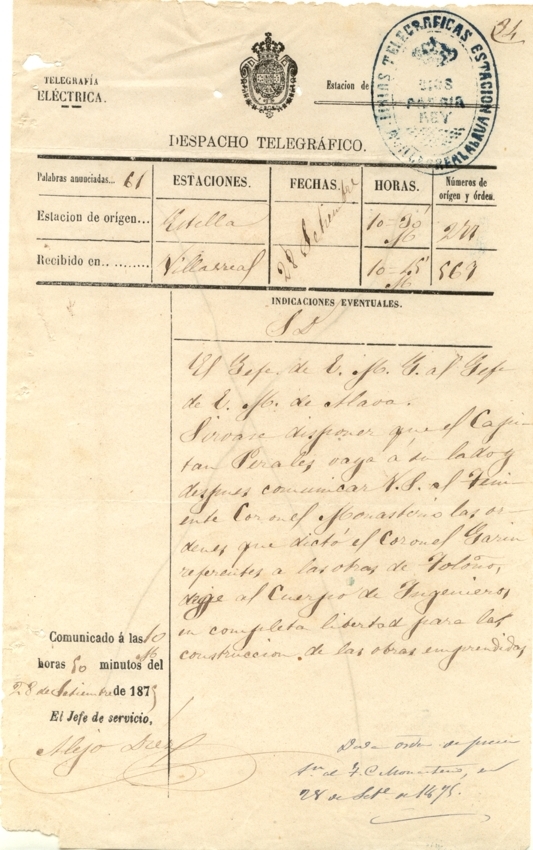 34
TELEGRAFÍA
ELÉCTRICA.
Estacion de
TELEGRAFICAS ESTACION
DIOS
PATRIA
REY
DESPACHO TELEGRÁFICO.
Palabras anunciadas... 61
ESTACIONES.
FECHAS.
HORAS.
Números de
orígen y órden.
Estacion de orígen...
Estella
28 Setiembre
10-30
M
Recibido en..
Villarreal
10-45
M
563
INDICACIONES EVENTUALES.
S D
El Gefe de E. M. G. al Gefe
de E. M. de Alava.
Sirvase disponer que el Capi-
tan Perales vaya á su lado y
despues comunicar V.S. al Teni-
ente Coronel Monasterio las or-
denes que dictó el Coronel Garin
referentes a las obras de Toloño,
deje al Cuerpo de Ingenieros
en completa libertad para las
construccion de las obras emprendidas
Comunicado á las 10
M
horas 50 minutos del
28 de Setiembre de 1875
El Jefe de servicio,
Alejo
Dada orden de
al T. C. Monasterio, en
28 de Setbre de 1875.